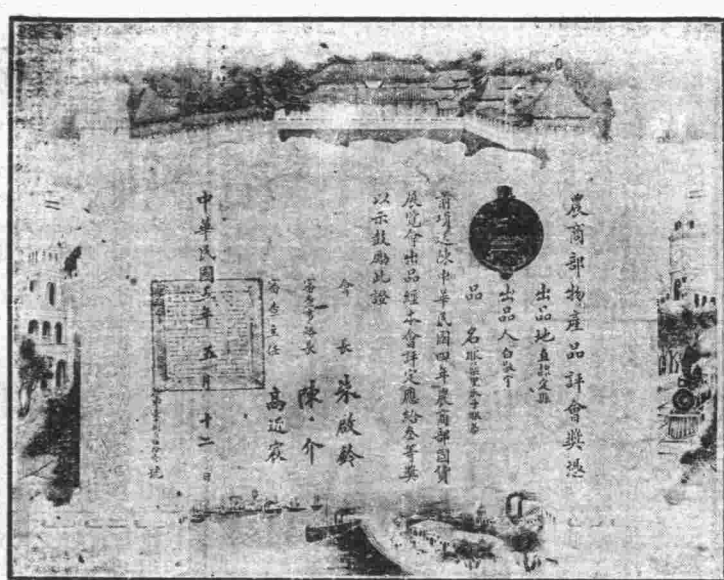 農商部物產品評會獎憑
出品地直隸定縣
出品人白敬宇
品 名眼藥
前項運陳中華民國四年農商部國貨
展覽會出品經本會評定應給叁等獎
以示鼓勵此證
會 長 朱啟鈐
審查長 陳介
審查主任 高近宸
中華民國五年五月十二日
號